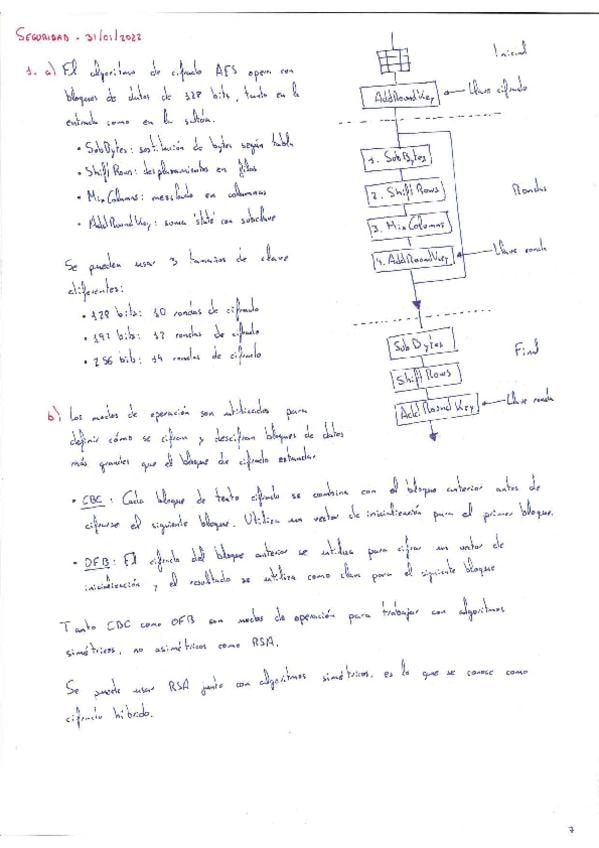 SEGURIDAD - 31/01/2022
1. a) El algoritmo de cifrado AES opera con
bloques de datos de 128 bits, tanto en la
entrada como en la salida.
• SubBytes: sustitución de bytes según tabla
• ShiftRows: desplazamientos en filas
• MixColumns: mezclado en columnas
• AddRoundKey: suma 'state' con subclave
Se pueden usar 3 tamaños de clave
diferentes:
• 128 bits: 10 rondas de cifrado
• 192 bits: 12 rondas de cifrado
• 256 bits: 14 rondas de cifrado
Inicial
AddRoundKey
Llave cifrado
1. SubBytes
2. ShiftRows
Rondas
3. MixColumns
4. AddRoundKey
Llave ronda
SubBytes
Final
ShiftRows
AddRoundKey
Llave ronda
b) Los modos de operación son utilizados para
definir cómo se cifran y descifran bloques de datos
más grandes que el bloque de cifrado estandar
• CBC: Cada bloque de texto cifrado se combina con el bloque anterior antes de
cifrarse el siguiente bloque. Utiliza un vector de inicialización para el primer bloque.
• OFB: El cifrado del bloque anterior se utiliza para cifrar un vector de
inicialización, y el resultado se utiliza como clave para el siguiente bloque
Tanto CBC como OFB son modos de operación para trabajar con algoritmos
simétricos, no asimétricos como RSA.
Se puede usar RSA junto con algoritmos simétricos, es lo que se conoce como
cifrado híbrido.